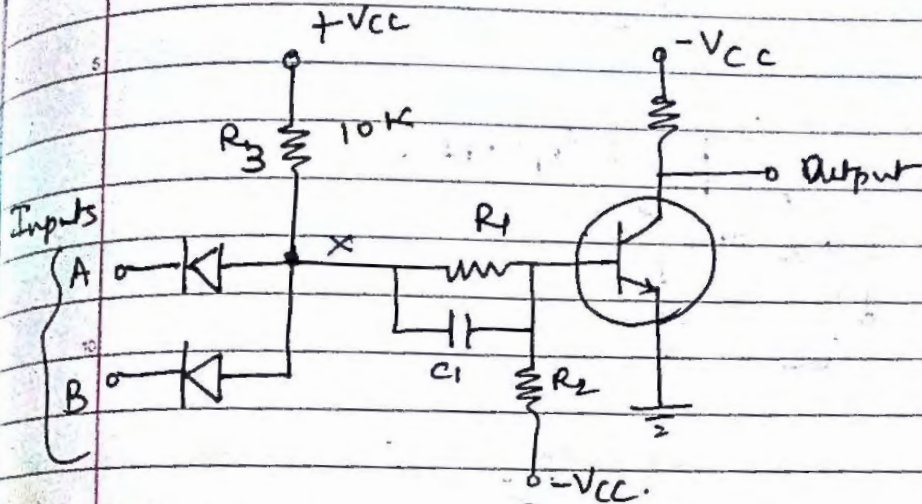 +Vcc
-Vcc
R3 10K
Output
Inputs
X
R1
A
C1
R2
B
-Vcc.